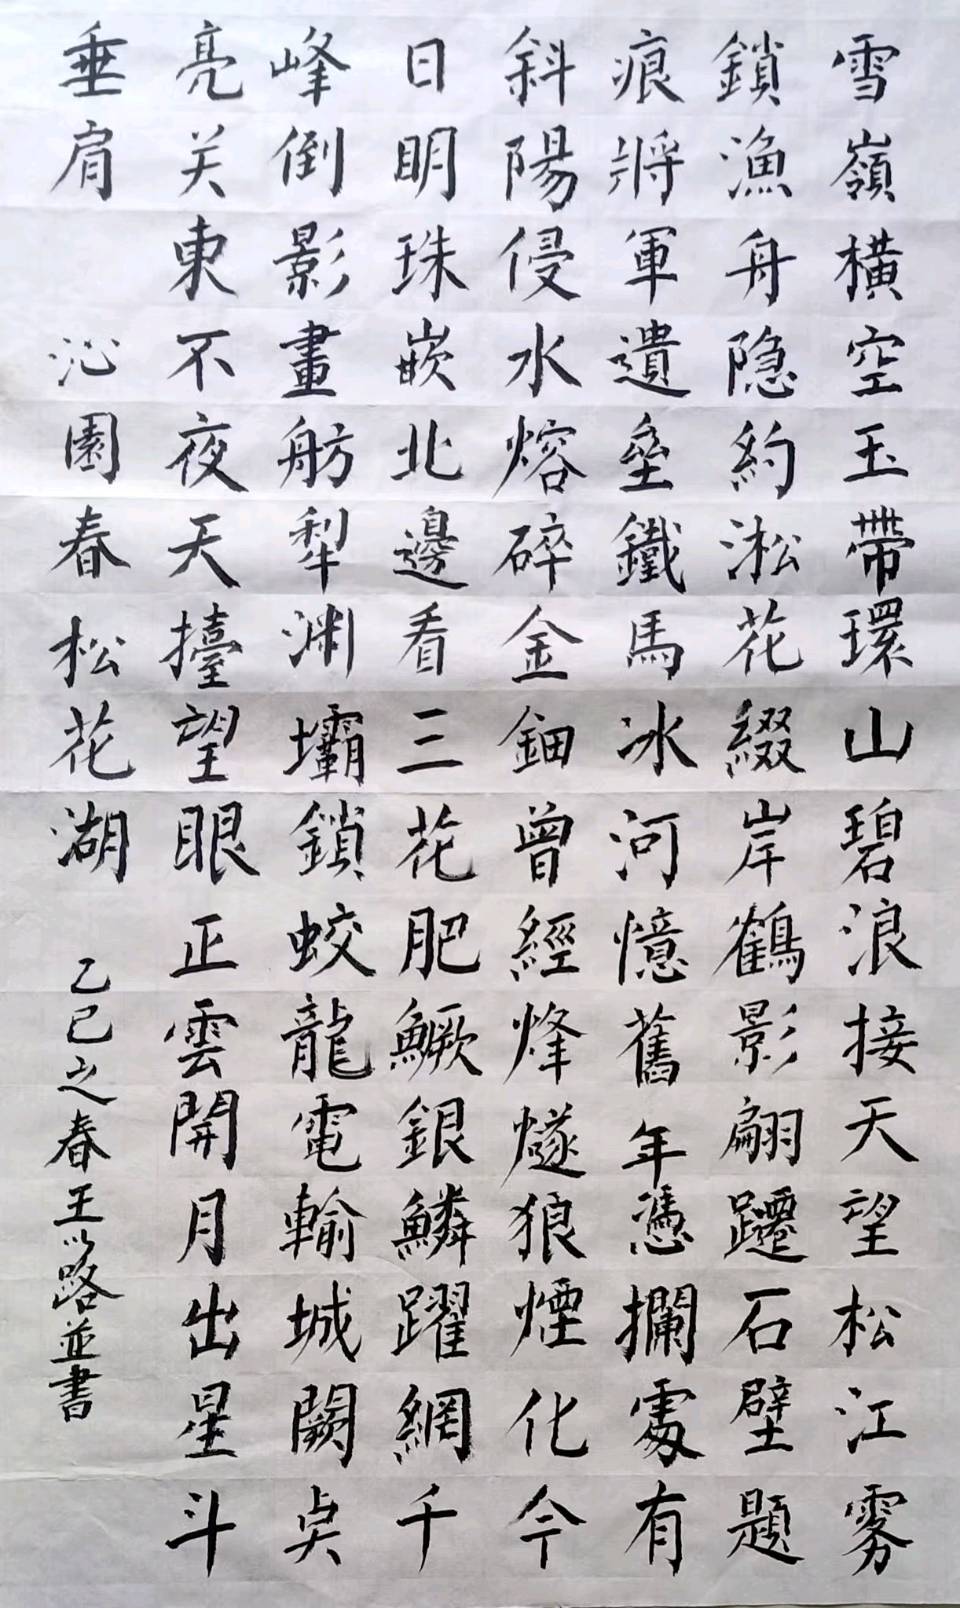 雪嶺橫空玉帶環山碧浪接天望松江雾
鎖漁舟隐約淞花綴岸鶴影翩躚石壁題
痕將軍遺壘鐵馬冰河憶舊年憑攔處有
斜陽侵水熔碎金鈿曾經烽燧狼煙化今
日明珠嵌北邊看三花肥鳜銀鱗躍網千
峰倒影畫舫犁渊壩鎖蛟龍電輸城闕点
亮关東不夜天擡望眼正雲開月出星斗
垂肩
沁園春松花湖
乙巳之春王以路並書